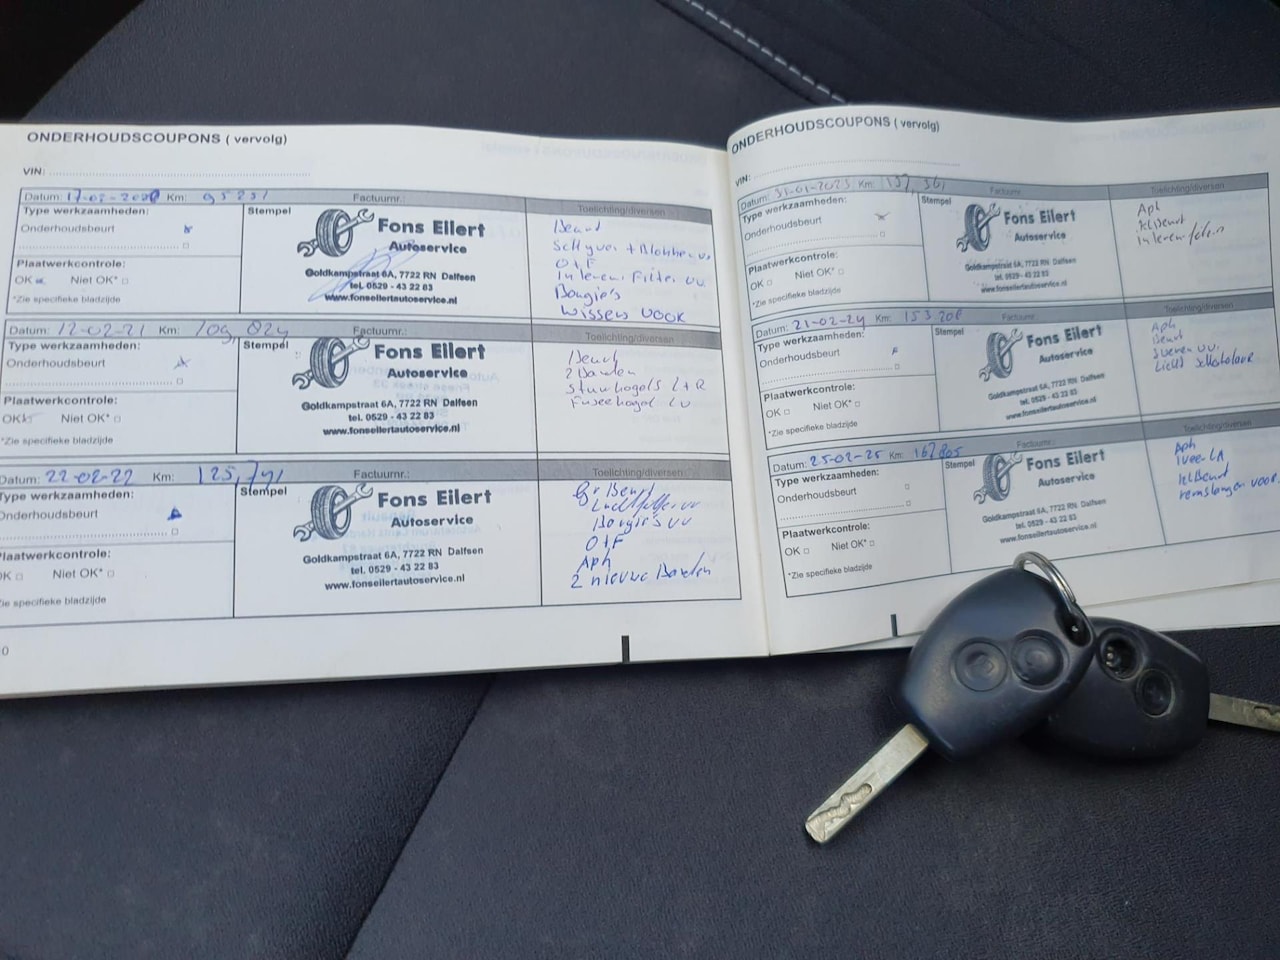 ONDERHOUDSCOUPONS ( vervolg)
VIN:
Datum: 17-02-2020 Km: 95231 Factuurnr.:
Type werkzaamheden: Stempel Toelichting/diversen
Onderhoudsbeurt
Plaatwerkcontrole:
OK Niet OK*
*Zie specifieke bladzijde
Fons Eilert
Autoservice
Goldkampstraat 6A, 7722 RN Dalfsen
tel. 0529 - 43 22 83
www.fonseilertautoservice.nl
Beurt
Schyven + Blokken v.
O+F
Interieur Filter vv.
Bougie's
Wissers voor
Datum: 12-02-21 Km: 109,024 Factuurnr.:
Type werkzaamheden: Stempel Toelichting/diversen
Onderhoudsbeurt
Plaatwerkcontrole:
OK Niet OK*
*Zie specifieke bladzijde
Fons Eilert
Autoservice
Goldkampstraat 6A, 7722 RN Dalfsen
tel. 0529 - 43 22 83
www.fonseilertautoservice.nl
Beurt
2 Banden
Stuurkogels L+R
Fuseekogel LV
Datum: 22-02-22 Km: 125,791 Factuurnr.:
Type werkzaamheden: Stempel Toelichting/diversen
Onderhoudsbeurt
Plaatwerkcontrole:
OK Niet OK*
*Zie specifieke bladzijde
Fons Eilert
Autoservice
Goldkampstraat 6A, 7722 RN Dalfsen
tel. 0529 - 43 22 83
www.fonseilertautoservice.nl
Gr Beurt
Luchtfilter vv
Bougie's vv
O+F
Aph
2 nieuwe Banden
0
ONDERHOUDSCOUPONS ( vervolg)
VIN:
Datum: 31-01-2023 Km: Factuurnr.
Type werkzaamheden: Stempel Toelichting/diversen
Onderhoudsbeurt
Plaatwerkcontrole:
OK Niet OK*
*Zie specifieke bladzijde
Fons Eilert
Autoservice
Goldkampstraat 6A, 7722 RN Dalfsen
tel. 0529 - 43 22 83
www.fonseilertautoservice.nl
Aph
kl Beurt
Datum: 21-02-24 Km: 153 208 Factuurnr.:
Type werkzaamheden: Stempel Toelichting/diversen
Onderhoudsbeurt
Plaatwerkcontrole:
OK Niet OK*
*Zie specifieke bladzijde
Fons Eilert
Autoservice
Goldkampstraat 6A, 7722 RN Dalfsen
tel. 0529 - 43 22 83
www.fonseilertautoservice.nl
Aph
Beurt
Datum: 25-02-25 Km: 162805 Factuurnr.:
Type werkzaamheden: Stempel Toelichting/diversen
Onderhoudsbeurt
Plaatwerkcontrole:
OK Niet OK*
*Zie specifieke bladzijde
Fons Eilert
Autoservice
Goldkampstraat 6A, 7722 RN Dalfsen
tel. 0529 - 43 22 83
www.fonseilertautoservice.nl
Aph
kl Beurt
remslangen voor.